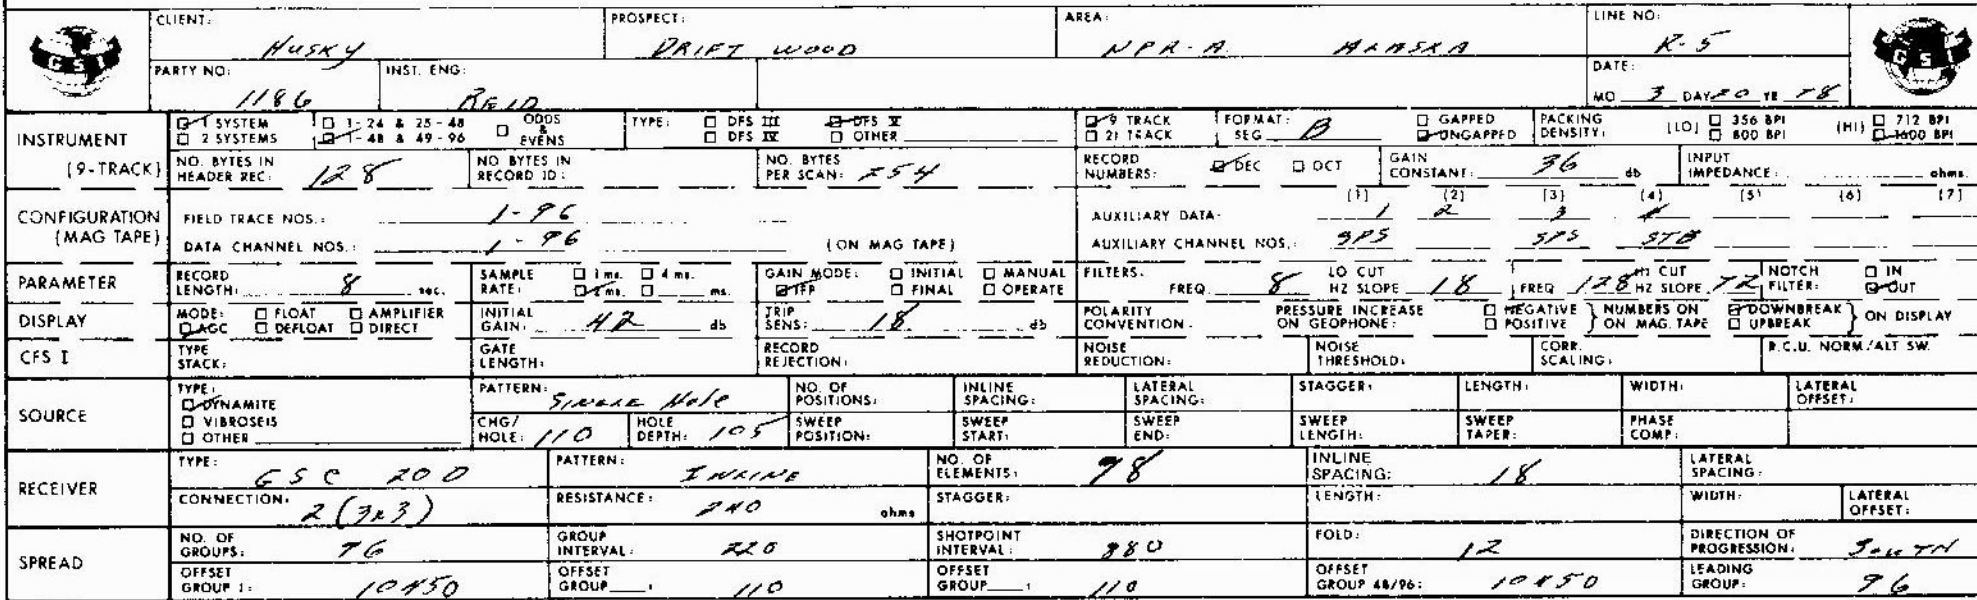 CLIENT: Husky PROSPECT: DRIFT WOOD AREA: NPR-A ALASKA LINE NO: R-5
GSI
GSI
PARTY NO: 1186 INST. ENG: REID DATE: MO 3 DAY 20 YR 78
INSTRUMENT (9-TRACK) 1 SYSTEM 1-24 & 25-48 ODDS & EVENS TYPE: DFS III DFS V 9 TRACK FORMAT: SEG B GAPPED PACKING DENSITY: (LO) 356 BPI (HI) 712 BPI
2 SYSTEMS 1-48 & 49-96 DFS IV OTHER 21 TRACK UNGAPPED 800 BPI 1600 BPI
NO. BYTES IN HEADER REC: 128 NO BYTES IN RECORD ID: NO. BYTES PER SCAN: 254 RECORD NUMBERS: DEC OCT GAIN CONSTANT: 36 db INPUT IMPEDANCE: ohms.
CONFIGURATION (MAG TAPE) (1) (2) (3) (4) (5) (6) (7)
FIELD TRACE NOS.: 1-96 AUXILIARY DATA: 1 2 3 4
DATA CHANNEL NOS.: 1-96 (ON MAG TAPE) AUXILIARY CHANNEL NOS.: SPS STB
PARAMETER RECORD LENGTH: 8 sec. SAMPLE RATE: 1 ms. 4 ms. 2 ms. ms. GAIN MODE: INITIAL MANUAL IFP FINAL OPERATE FILTERS: FREQ 8 LO CUT HZ SLOPE 18 FREQ 128 HI CUT HZ SLOPE 72 NOTCH FILTER: IN OUT
DISPLAY MODE: FLOAT AMPLIFIER AGC DEFLOAT DIRECT INITIAL GAIN: 42 db TRIP SENS: 18 db POLARITY CONVENTION: PRESSURE INCREASE ON GEOPHONE: NEGATIVE POSITIVE } NUMBERS ON ON MAG. TAPE DOWNBREAK UPBREAK } ON DISPLAY
CFS I TYPE STACK: GATE LENGTH: RECORD REJECTION: NOISE REDUCTION: NOISE THRESHOLD: CORR. SCALING: R.C.U. NORM/ALT SW.
SOURCE TYPE: DYNAMITE VIBROSEIS OTHER PATTERN: SINGLE Hole NO. OF POSITIONS: INLINE SPACING: LATERAL SPACING: STAGGER: LENGTH: WIDTH: LATERAL OFFSET:
CHG/HOLE: 110 HOLE DEPTH: 105 SWEEP POSITION: SWEEP START: SWEEP END: SWEEP LENGTH: SWEEP TAPER: PHASE COMP:
RECEIVER TYPE: GSC 20D PATTERN: INLINE NO. OF ELEMENTS: INLINE SPACING: 18 LATERAL SPACING:
CONNECTION: 2 (3x3) RESISTANCE: 240 ohms STAGGER: LENGTH: WIDTH: LATERAL OFFSET:
SPREAD NO. OF GROUPS: 96 GROUP INTERVAL: 220 SHOTPOINT INTERVAL: 880 FOLD: 12 DIRECTION OF PROGRESSION: SOUTH
OFFSET GROUP 1: 10450 OFFSET GROUP : 110 OFFSET GROUP : 110 OFFSET GROUP 48/96: 10450 LEADING GROUP: 96